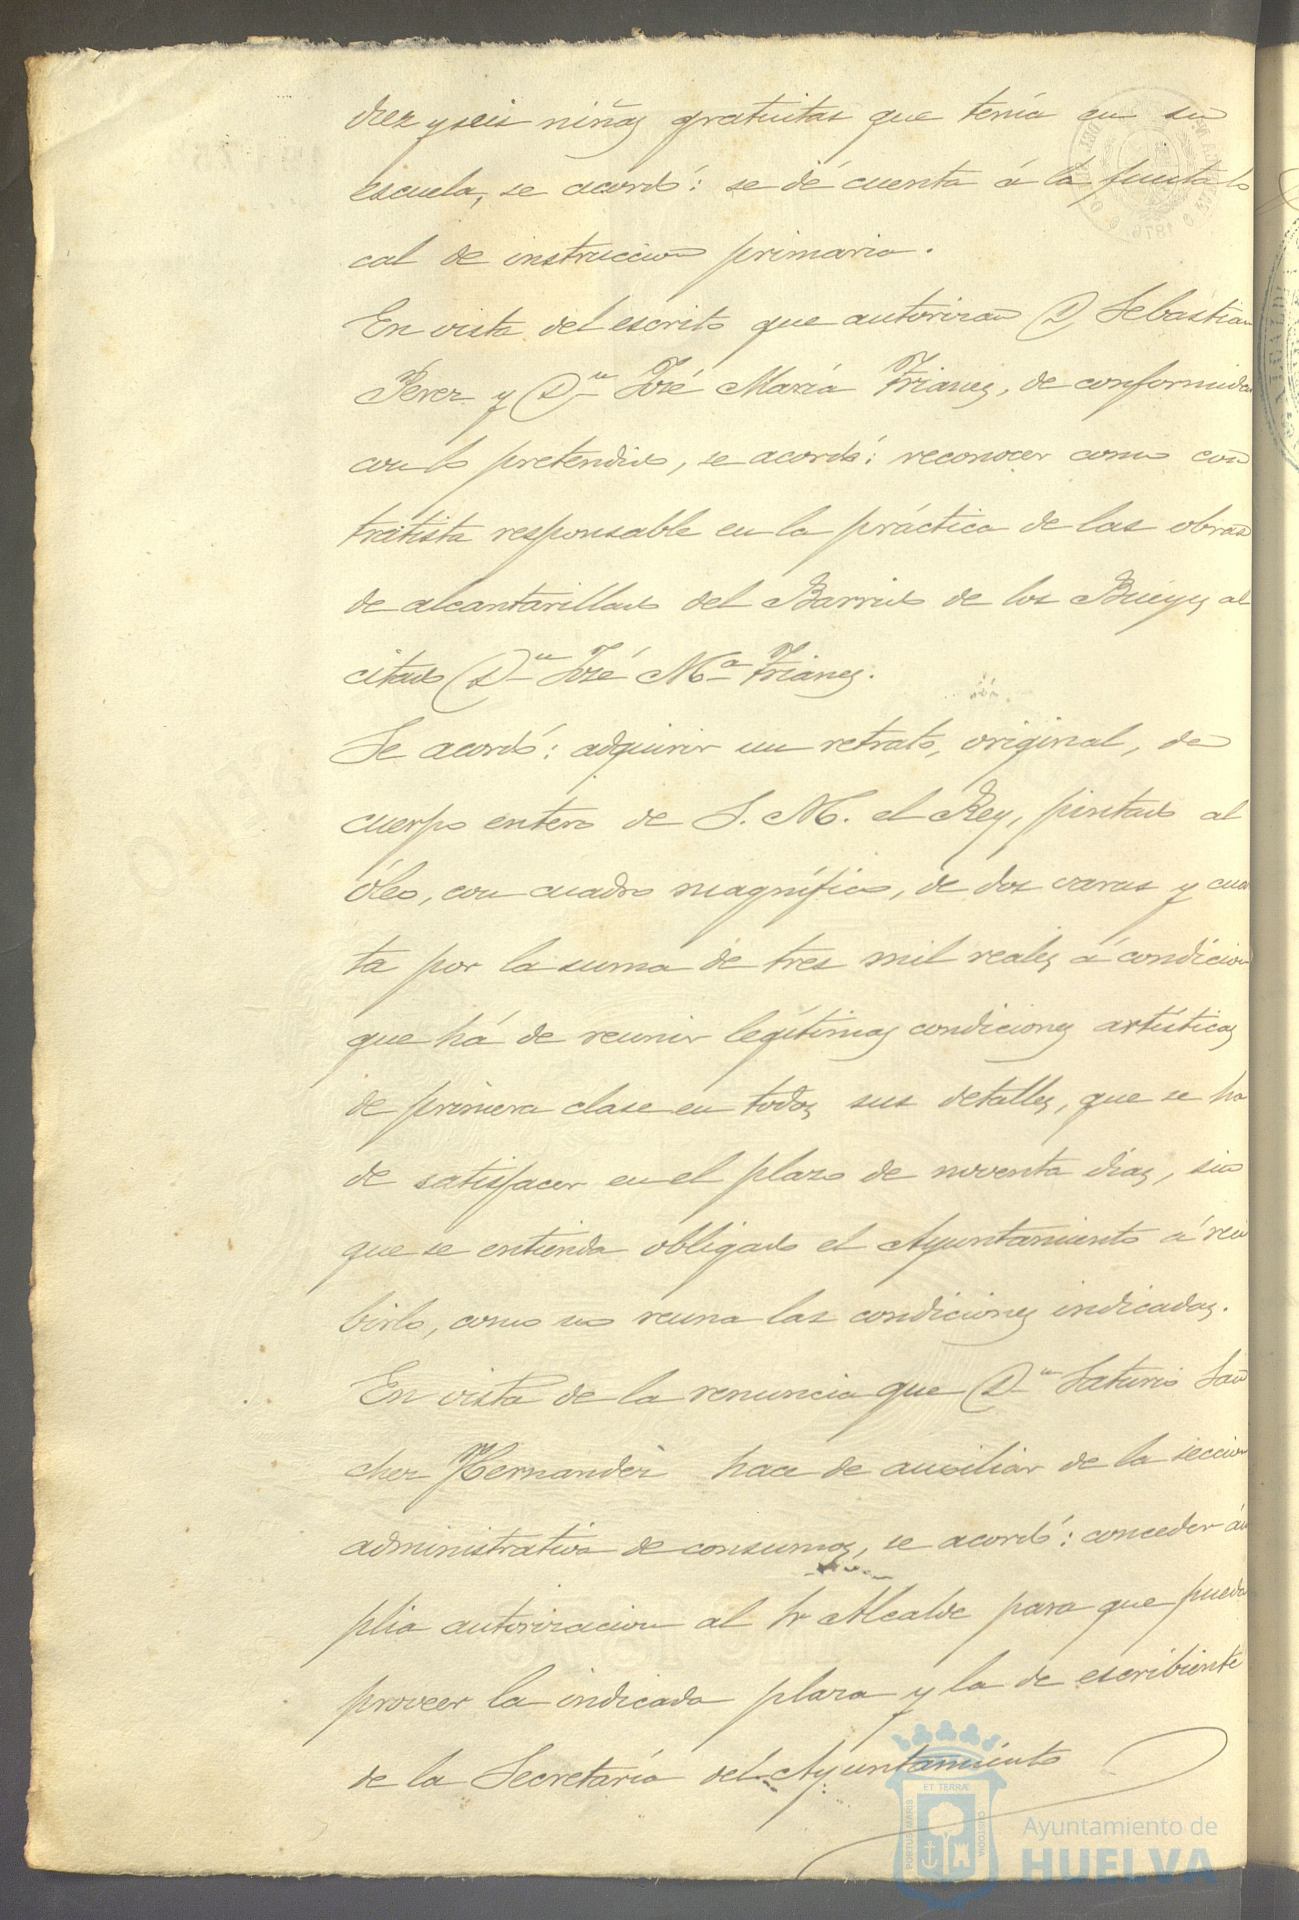 diez y seis niñas gratuitas que tenía en su
escuela, se acordó: se dé cuenta á la Junta lo
cal de instruccion primaria.
En vista del escrito que autorizan D Sebastian
Perez y Dn José María Trianes, de conformidad
con lo pretendido, se acordó: reconocer como con
tratista responsable en la práctica de las obras
de alcantarillado del Barrio de los Bueyes al
citado Dn José Mª Trianes.
Se acordó: adquirir un retrato, original, de
cuerpo entero de S. M. el Rey, pintado al
óleo, con cuadro magnífico, de dos varas y cuar
ta por la suma de tres mil reales á condicion
que há de reunir legítimas condiciones artísticas
de primera clase en todos sus detalles, que se ha
de satisfacer en el plazo de noventa días, sin
que se entienda obligado el Ayuntamiento á reci
birlo, como no reuna las condiciones indicadas.
En vista de la renuncia que Dn Saturio San
chez Hernandez hace de auxiliar de la seccion
administrativa de consumos, se acordó: conceder ám
plia autorizacion al Sr Alcalde para que pueda
proveer la indicada plaza y la de escribiente
de la Secretaría del Ayuntamiento
ET TERRÆ
PORTUS MARIS
CUSTODIA
Ayuntamiento de
HUELVA
1876